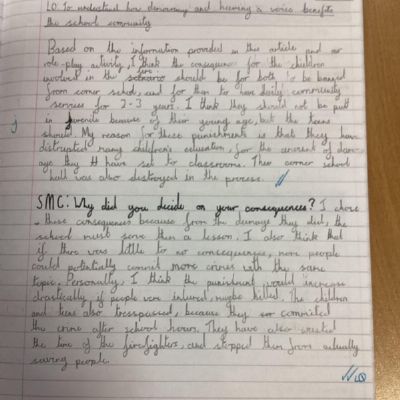 LO: To understand how democracy and having a voice benefits
the school community
Based on the information provided in this article and our
role-play activity, I think the consequence for the children
involved in the fire should be for both to be banned
from corner school, and for them to have daily community
service for 2-3 years. I think they should not be put
in juvenile because of their young age, but the teens
should. My reason for these punishments is that they have
distrupted many children's education, for the amount of dam-
age they have set to classrooms. Their corner school
hall was also destroyed in the process.
SMC: Why did you decide on your consequences? I chose
these consequences because from the damage they did, the
school must serve them a lesson. I also think that
if there was little to no consequences, more people
could potentially commit more crimes with the same
topic. Personally, I think the punishment would increase
drastically if people were injured, maybe killed. The children
and teens also tresspassed, because they committed
the crime after school hours. They have also wasted
the time of the firefighters, and stopped them from actually
saving people.